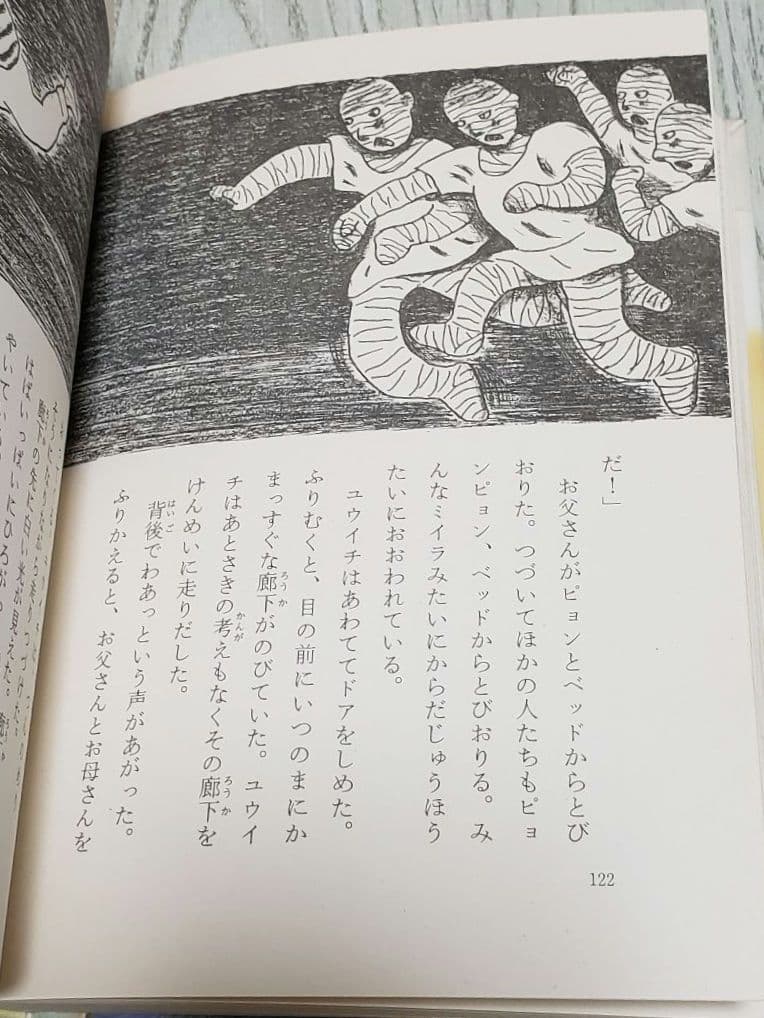 だ！」
お父さんがピョンとベッドからとび
おりた。つづいてほかの人たちもピョ
ンピョン、ベッドからとびおりる。み
んなミイラみたいにからだじゅうほう
たいにおおわれている。
ユウイチはあわててドアをしめた。
ふりむくと、目の前にいつのまにか
まっすぐな廊下がのびていた。ユウイ
チはあとさきの考えもなくその廊下を
けんめいに走りだした。
背後でわあっという声があがった。
ふりかえると、お父さんとお母さんを
122
廊下の先に白い光が見えた。